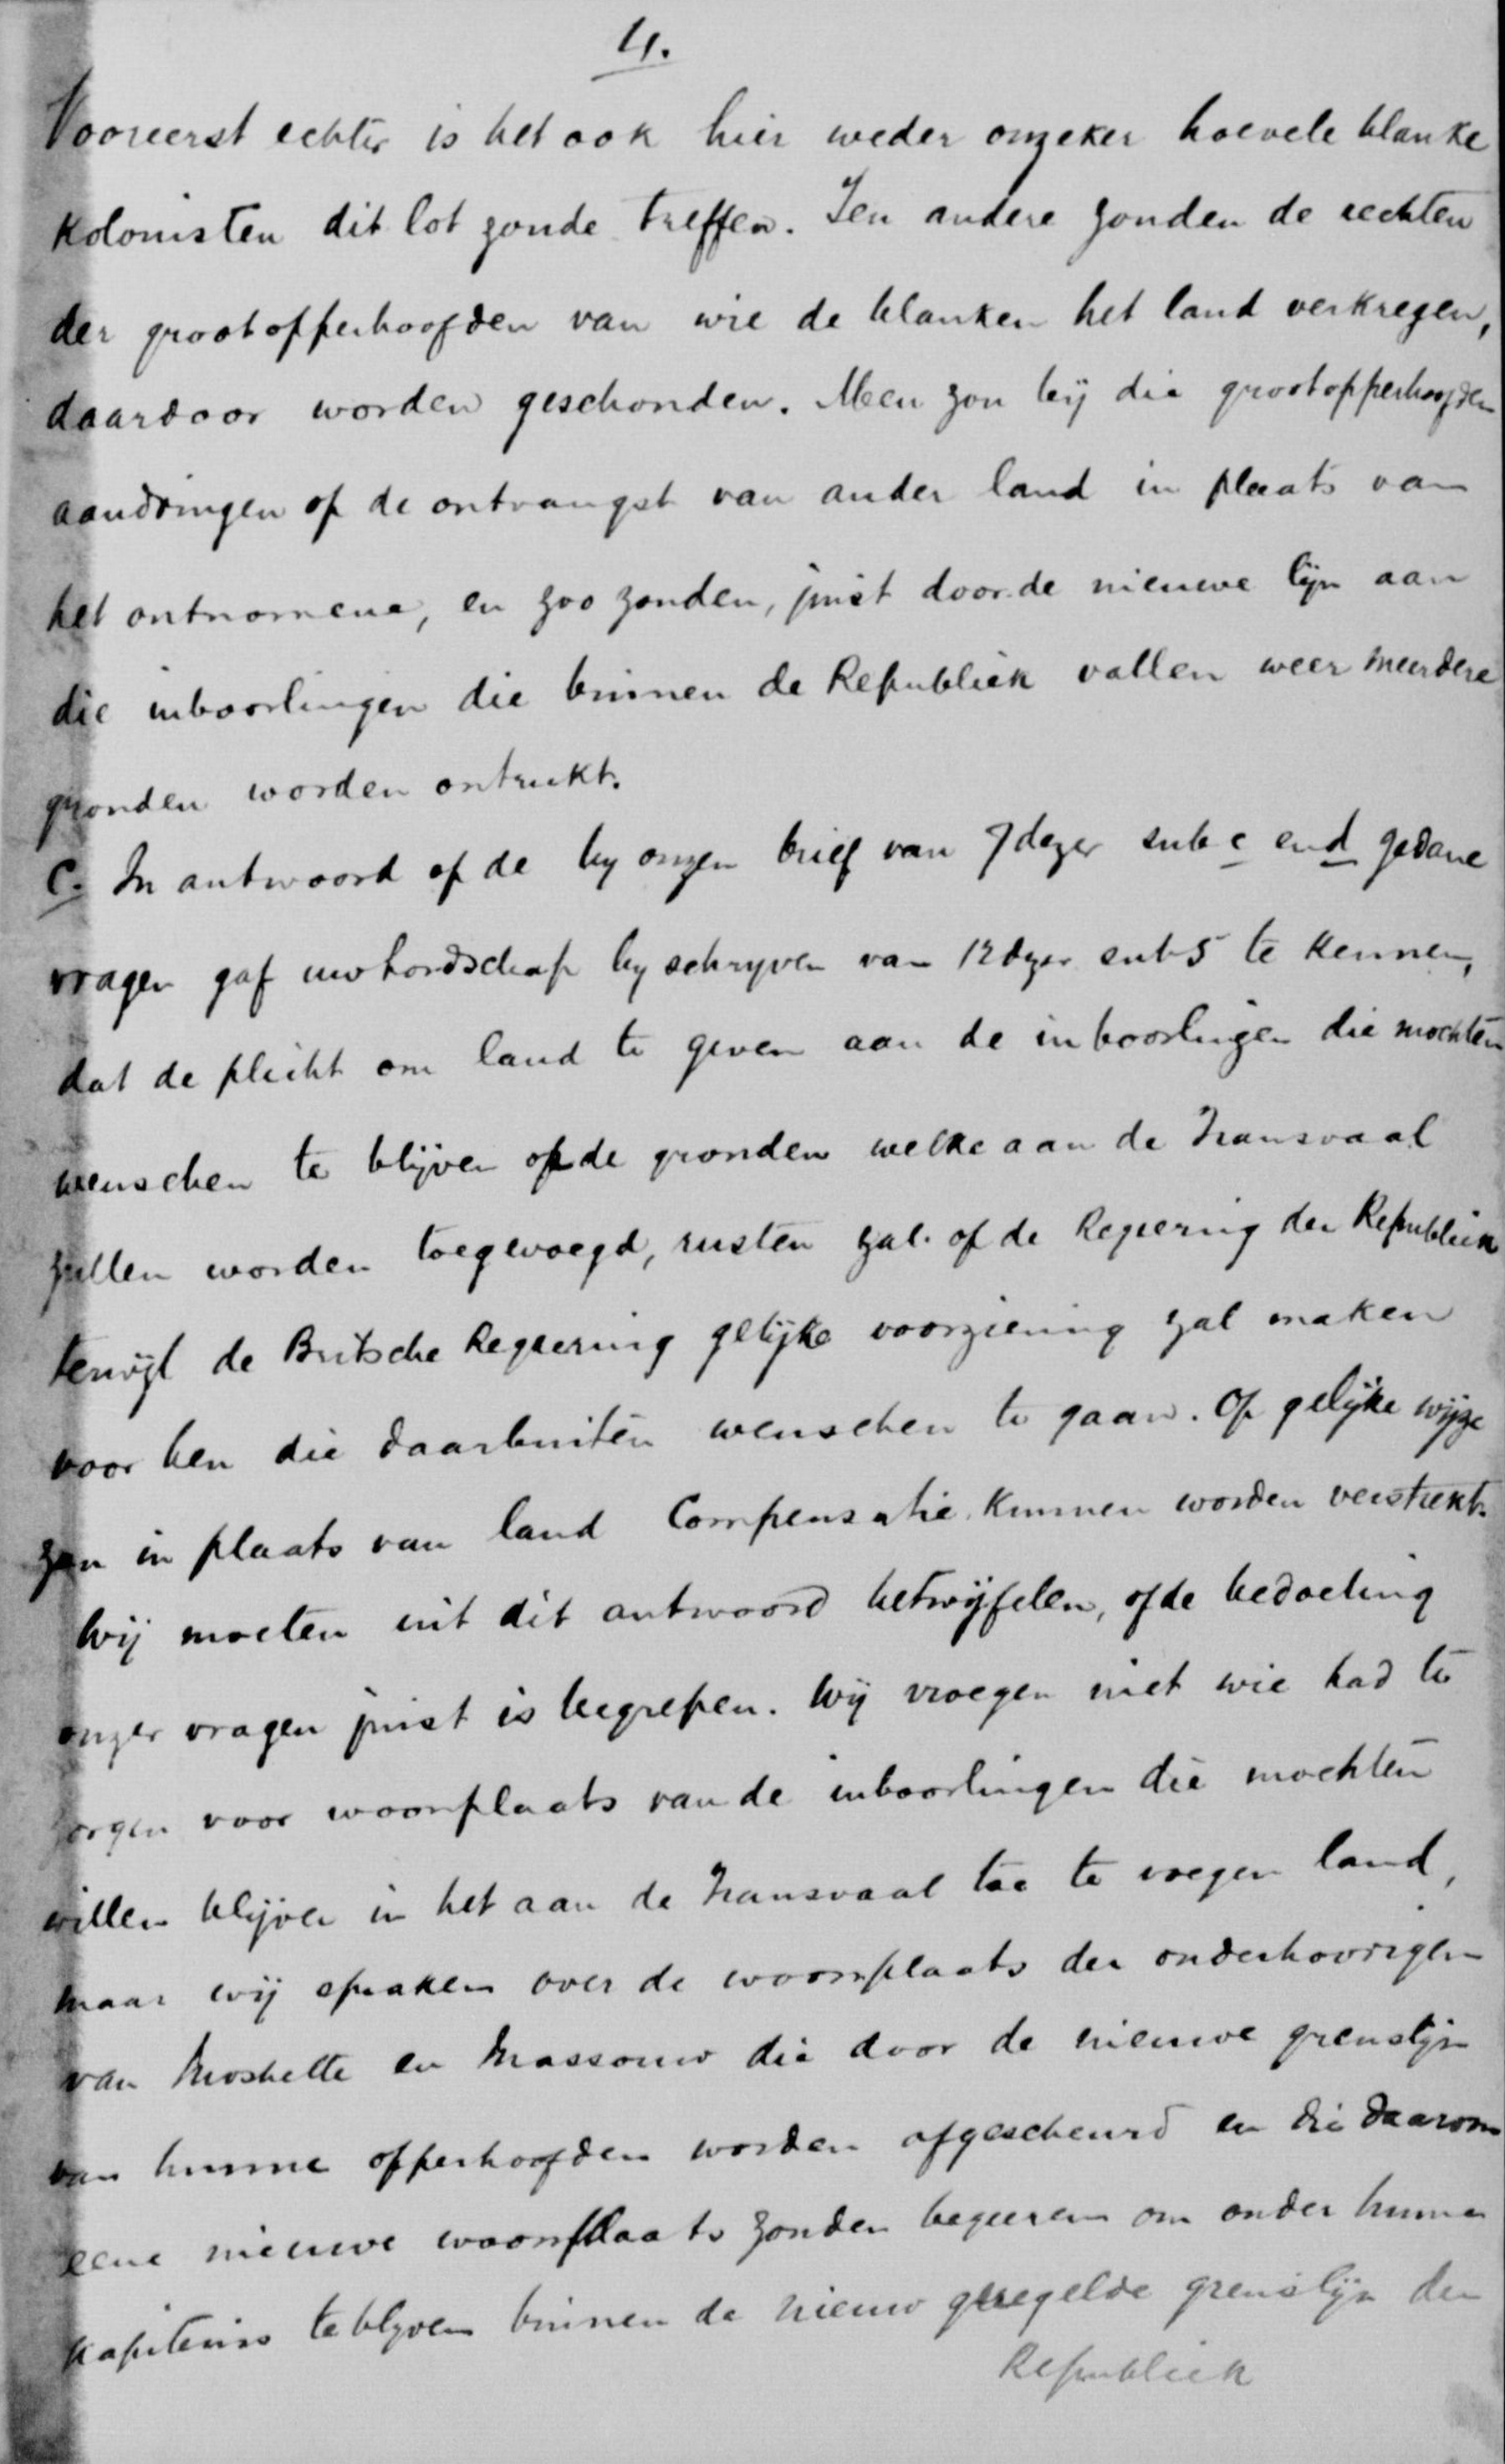 4.
Vooreerst echter is het ook hier weder onzeker hoevele blanke
kolonisten dit lot zoude treffen. Ten andere zouden de rechten
der grootopperhoofden van wie de blanken het land verkregen,
daardoor worden geschonden. Men zou bij die grootopperhoofden
aandringen op de ontvangst van ander land in plaats van
het ontnomene, en zoo zouden, juist door de nieuwe lijn aan
die inboorlingen die binnen de Republiek vallen weer meerdere
gronden worden ontrukt.
C. In antwoord op de by onzen brief van 7 dezer sub c en d gedane
vragen gaf uw Lordschap by schryven van 12 dezer sub 5 te kennen,
dat de plicht om land te geven aan de inboorlingen die mochten
wenschen te blijven op de gronden welke aan de Transvaal
zullen worden toegevoegd, rusten zal op de Regeering der Republiek
terwijl de Britsche Regeering gelijke voorziening zal maken
voor hen die daarbuiten wenschen te gaan. Op gelijke wijze
zou in plaats van land Compensatie kunnen worden verstrekt.
Wij moeten uit dit antwoord betwijfelen, of de bedoeling
onzer vragen juist is begrepen. Wij vroegen niet wie had te
zorgen voor woonplaats van de inboorlingen die mochten
willen blijven in het aan de Transvaal toe te voegen land,
maar wij spraken over de woonplaats der onderhoorigen
van Moshette en Massouw die door de nieuwe grenslijn
van hunne opperhoofden worden afgescheurd en die daarom
eene nieuwe woonplaats zouden begeeren om onder hunne
kapiteins te blyven binnen de nieuw geregelde grenslijn der
Republiek